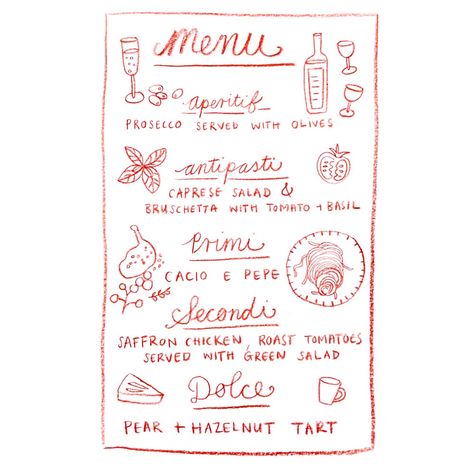 Menu
aperitif
PROSECCO SERVED WITH OLIVES
antipasti
CAPRESE SALAD &
BRUSCHETTA WITH TOMATO + BASIL
Primi
CACIO E PEPE
Secondi
SAFFRON CHICKEN, ROAST TOMATOES
SERVED WITH GREEN SALAD
Dolce
PEAR + HAZELNUT TART